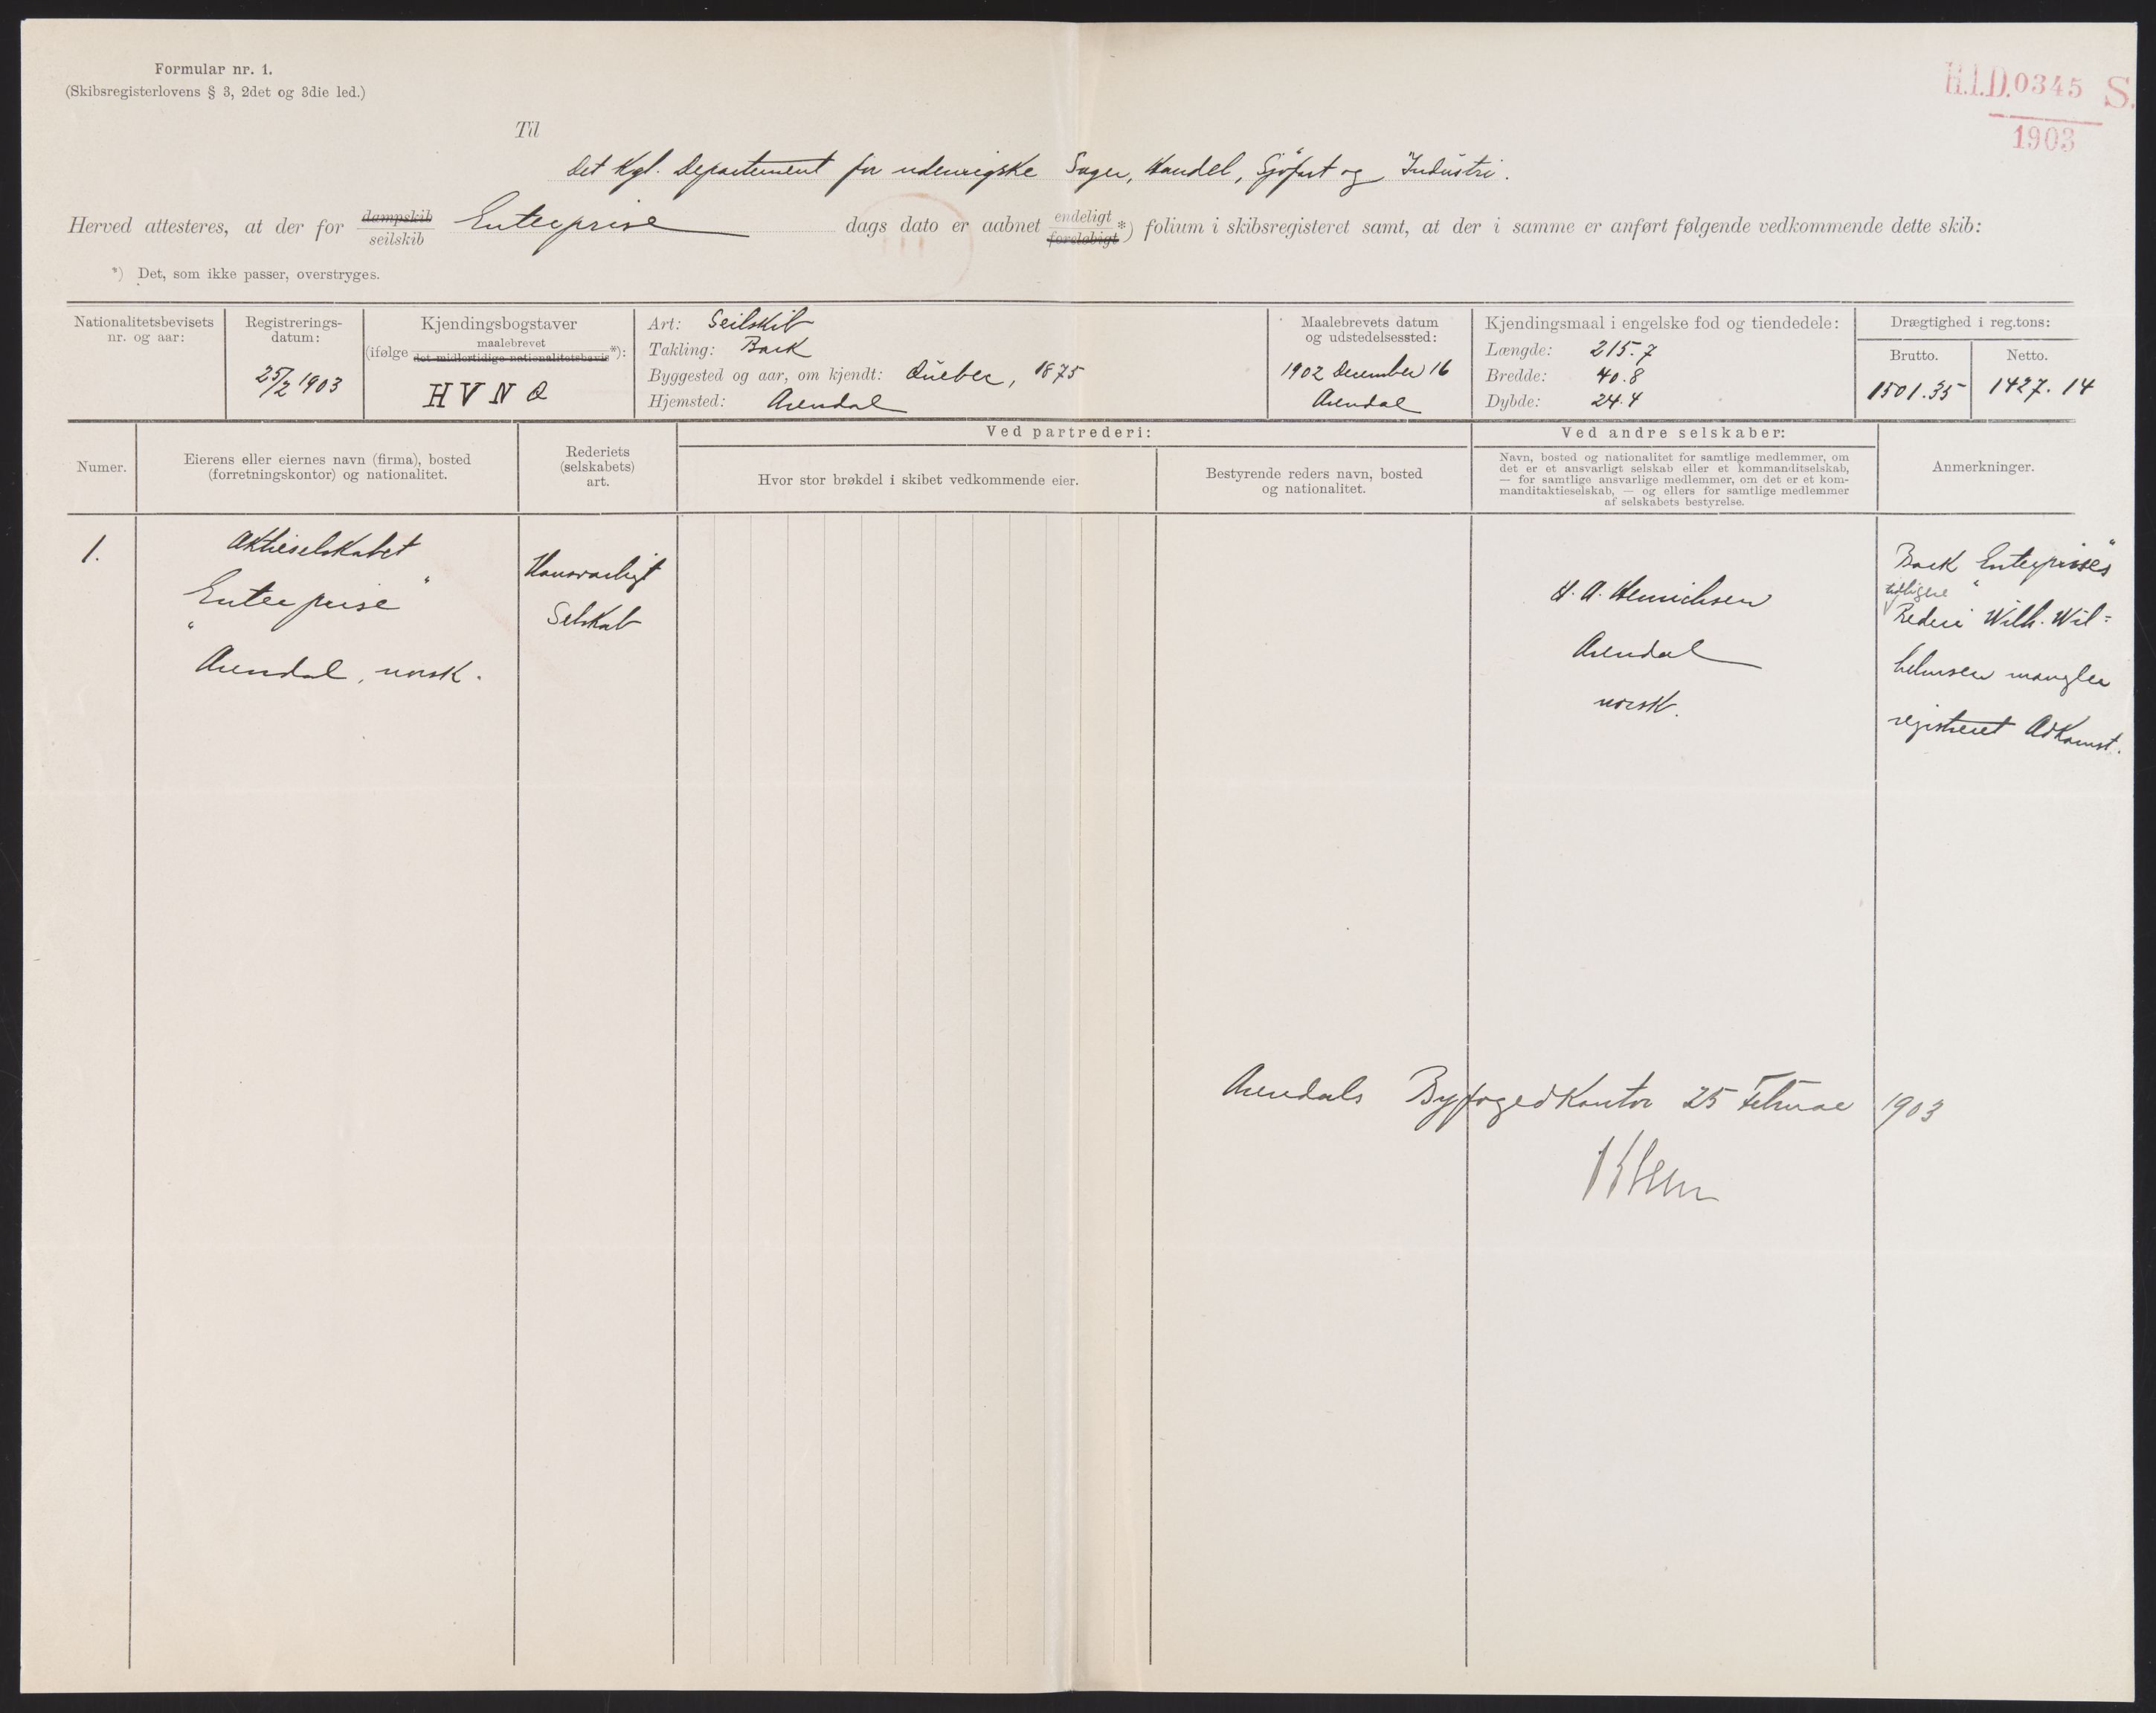 Formular nr. 1.
(Skibsregisterlovens § 3, 2det og 3die led.)
H.I.D. 0345 S.
1903
Til
Det Kgl. Departement for udenrigske Sager, Handel, Sjöfart og Industri.
Herved attesteres, at der for dampskib seilskib Enterprise dags dato er aabnet endeligt foreløbigt *) folium i skibsregisteret samt, at der i samme er anført følgende vedkommende dette skib:
*) Det, som ikke passer, overstryges.
Nationalitetsbevisets
nr. og aar:
Registrerings-
datum:
25/2 1903
Kjendingsbogstaver
(ifølge maalebrevet det midlertidige nationalitetsbevis *):
H V N Q
Art: Seilskib
Takling: Bark
Byggested og aar, om kjendt: Quebec, 1875
Hjemsted: Arendal
Maalebrevets datum
og udstedelsessted:
1902 December 16
Arendal
Kjendingsmaal i engelske fod og tiendedele:
Længde: 215.7
Bredde: 40.8
Dybde: 24.4
Drægtighed i reg.tons:
Brutto.
1501.35
Netto.
1427.14
Numer.
Eierens eller eiernes navn (firma), bosted
(forretningskontor) og nationalitet.
Rederiets
(selskabets)
art.
Ved partrederi:
Hvor stor brøkdel i skibet vedkommende eier.
Bestyrende reders navn, bosted
og nationalitet.
Ved andre selskaber:
Navn, bosted og nationalitet for samtlige medlemmer, om
det er et ansvarligt selskab eller et kommanditselskab,
— for samtlige ansvarlige medlemmer, om det er et kom-
manditaktieselskab, — og ellers for samtlige medlemmer
af selskabets bestyrelse.
Anmerkninger.
1.
Aktieselskabet
"Enterprise"
Arendal, norsk.
Uansvarligt
Selskab
H. A. Henrichsen
Arendal
norsk.
Bark "Enterprises"
tidligere
Rederi Wilh. Wil=
helmsen mangler
registreret Adkomst.
Arendals Byfogedkontor 25 Februar 1903